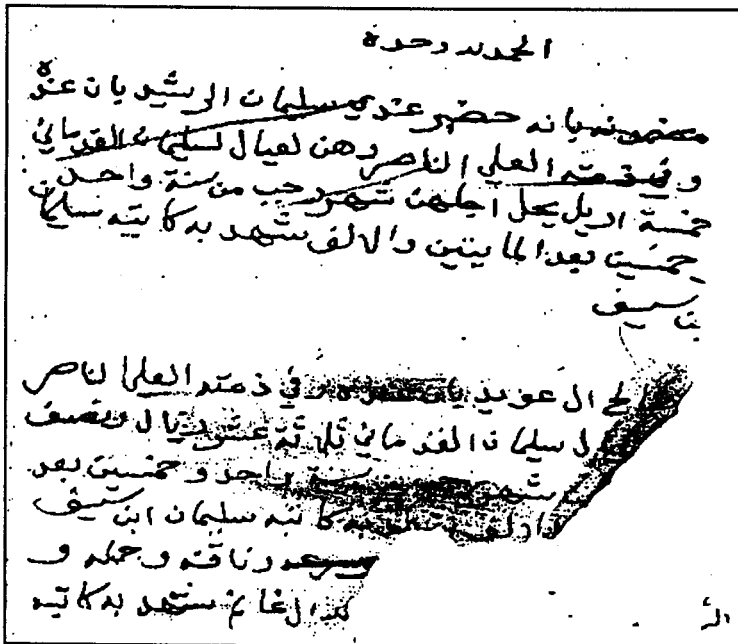 الحمد لله وحده
مضمونه بانه حضر عندي سليمان الرشيد بان عنده
وفي ذمته العلي الناصر وهن لعيال لسليمان القدماني
خمسة اريل يحل اجلهن شهر رجب من سنة واحد
خمسين بعد المايتين والالف شهد به كاتبه سليمان
بن سيف
ال عويد بان في ذمته العلي الناصر
سليمان القدماني ثلثة عشر ريال ونصف
شهر سنة واحد وخمسين بعد
كاتبه سليمان ابن سيف
وناقته وجمله و
الغانم شهد به كاتبه